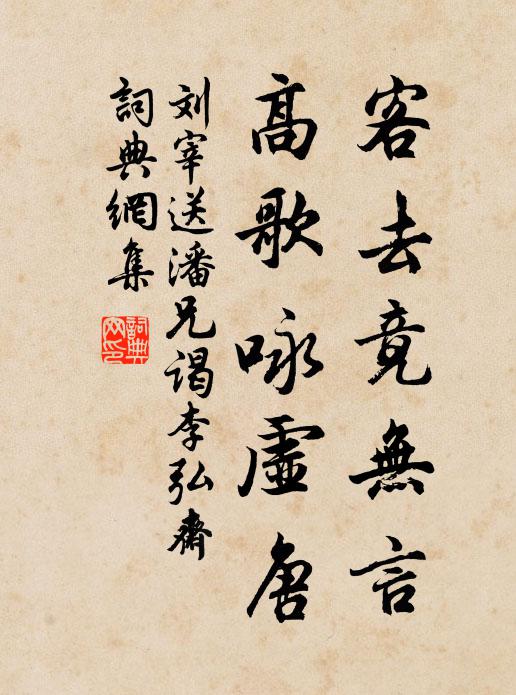 客去竟無言
高歌咏虛唐
刘宰送潘兄谒李弘齋
詞典網集
詞典
网印